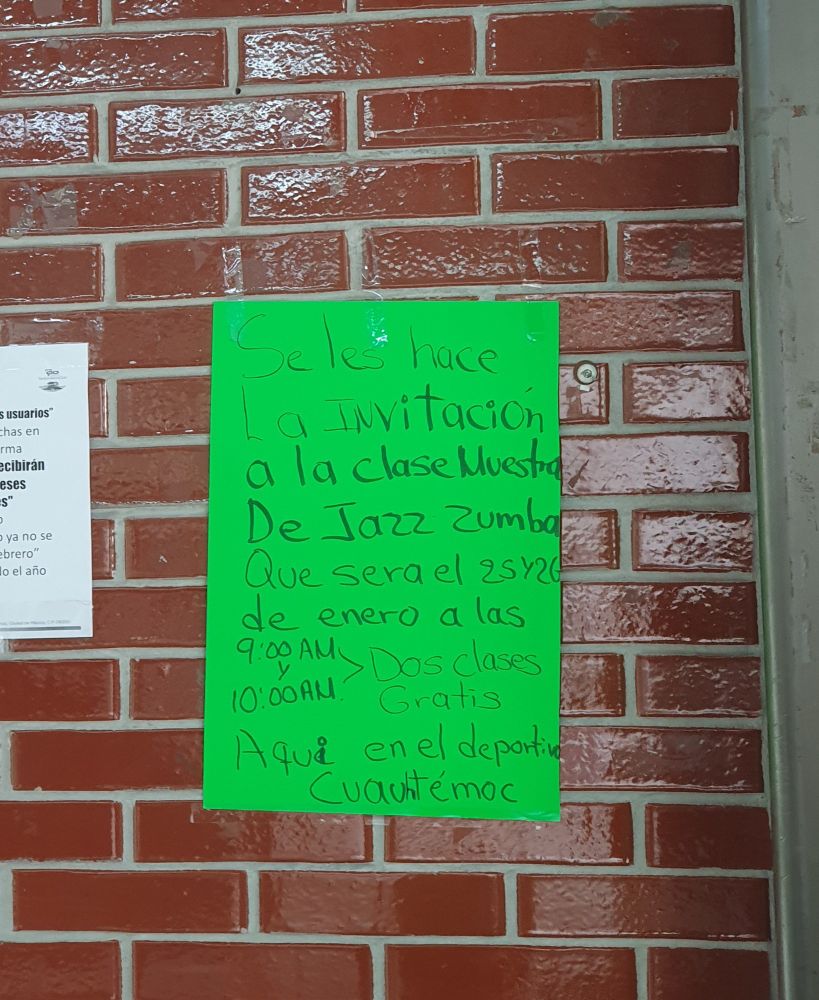 s usuarios"
chas en
rma
ecibirán
eses
s"
o
o ya no se
ebrero"
lo el año
Se les hace
La INVitación
a la clase Muestra
De Jazz Zumba
Que sera el 25 Y 26
de enero a las
9:00 AM
y
10:00 AM.
> Dos clases
Gratis
Aqui en el deportivo
Cuauhtémoc